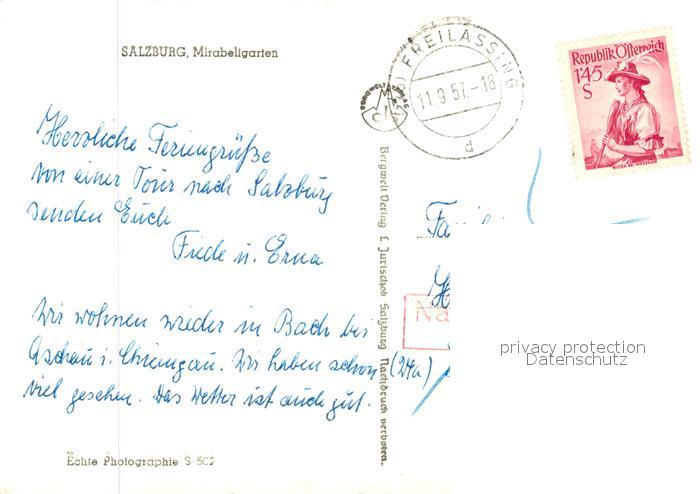 SALZBURG, Mirabellgarten
FREILASSING
11.9.57.-18
d
Republik Österreich
1'45
S
Herzliche Feriengrüße
von einer Tour nach Salzburg
senden Euch
Friede u. Erna
Wir wohnen wieder in Bach bei
Aschau i. Chiemgau. Wir haben schon
viel gesehen. Das Wetter ist auch gut.
Bergwelt Verlag L. Jurischek Salzburg Nachdruck verboten.
(24a)
Na
privacy protection
Datenschutz
Echte Photographie S 502